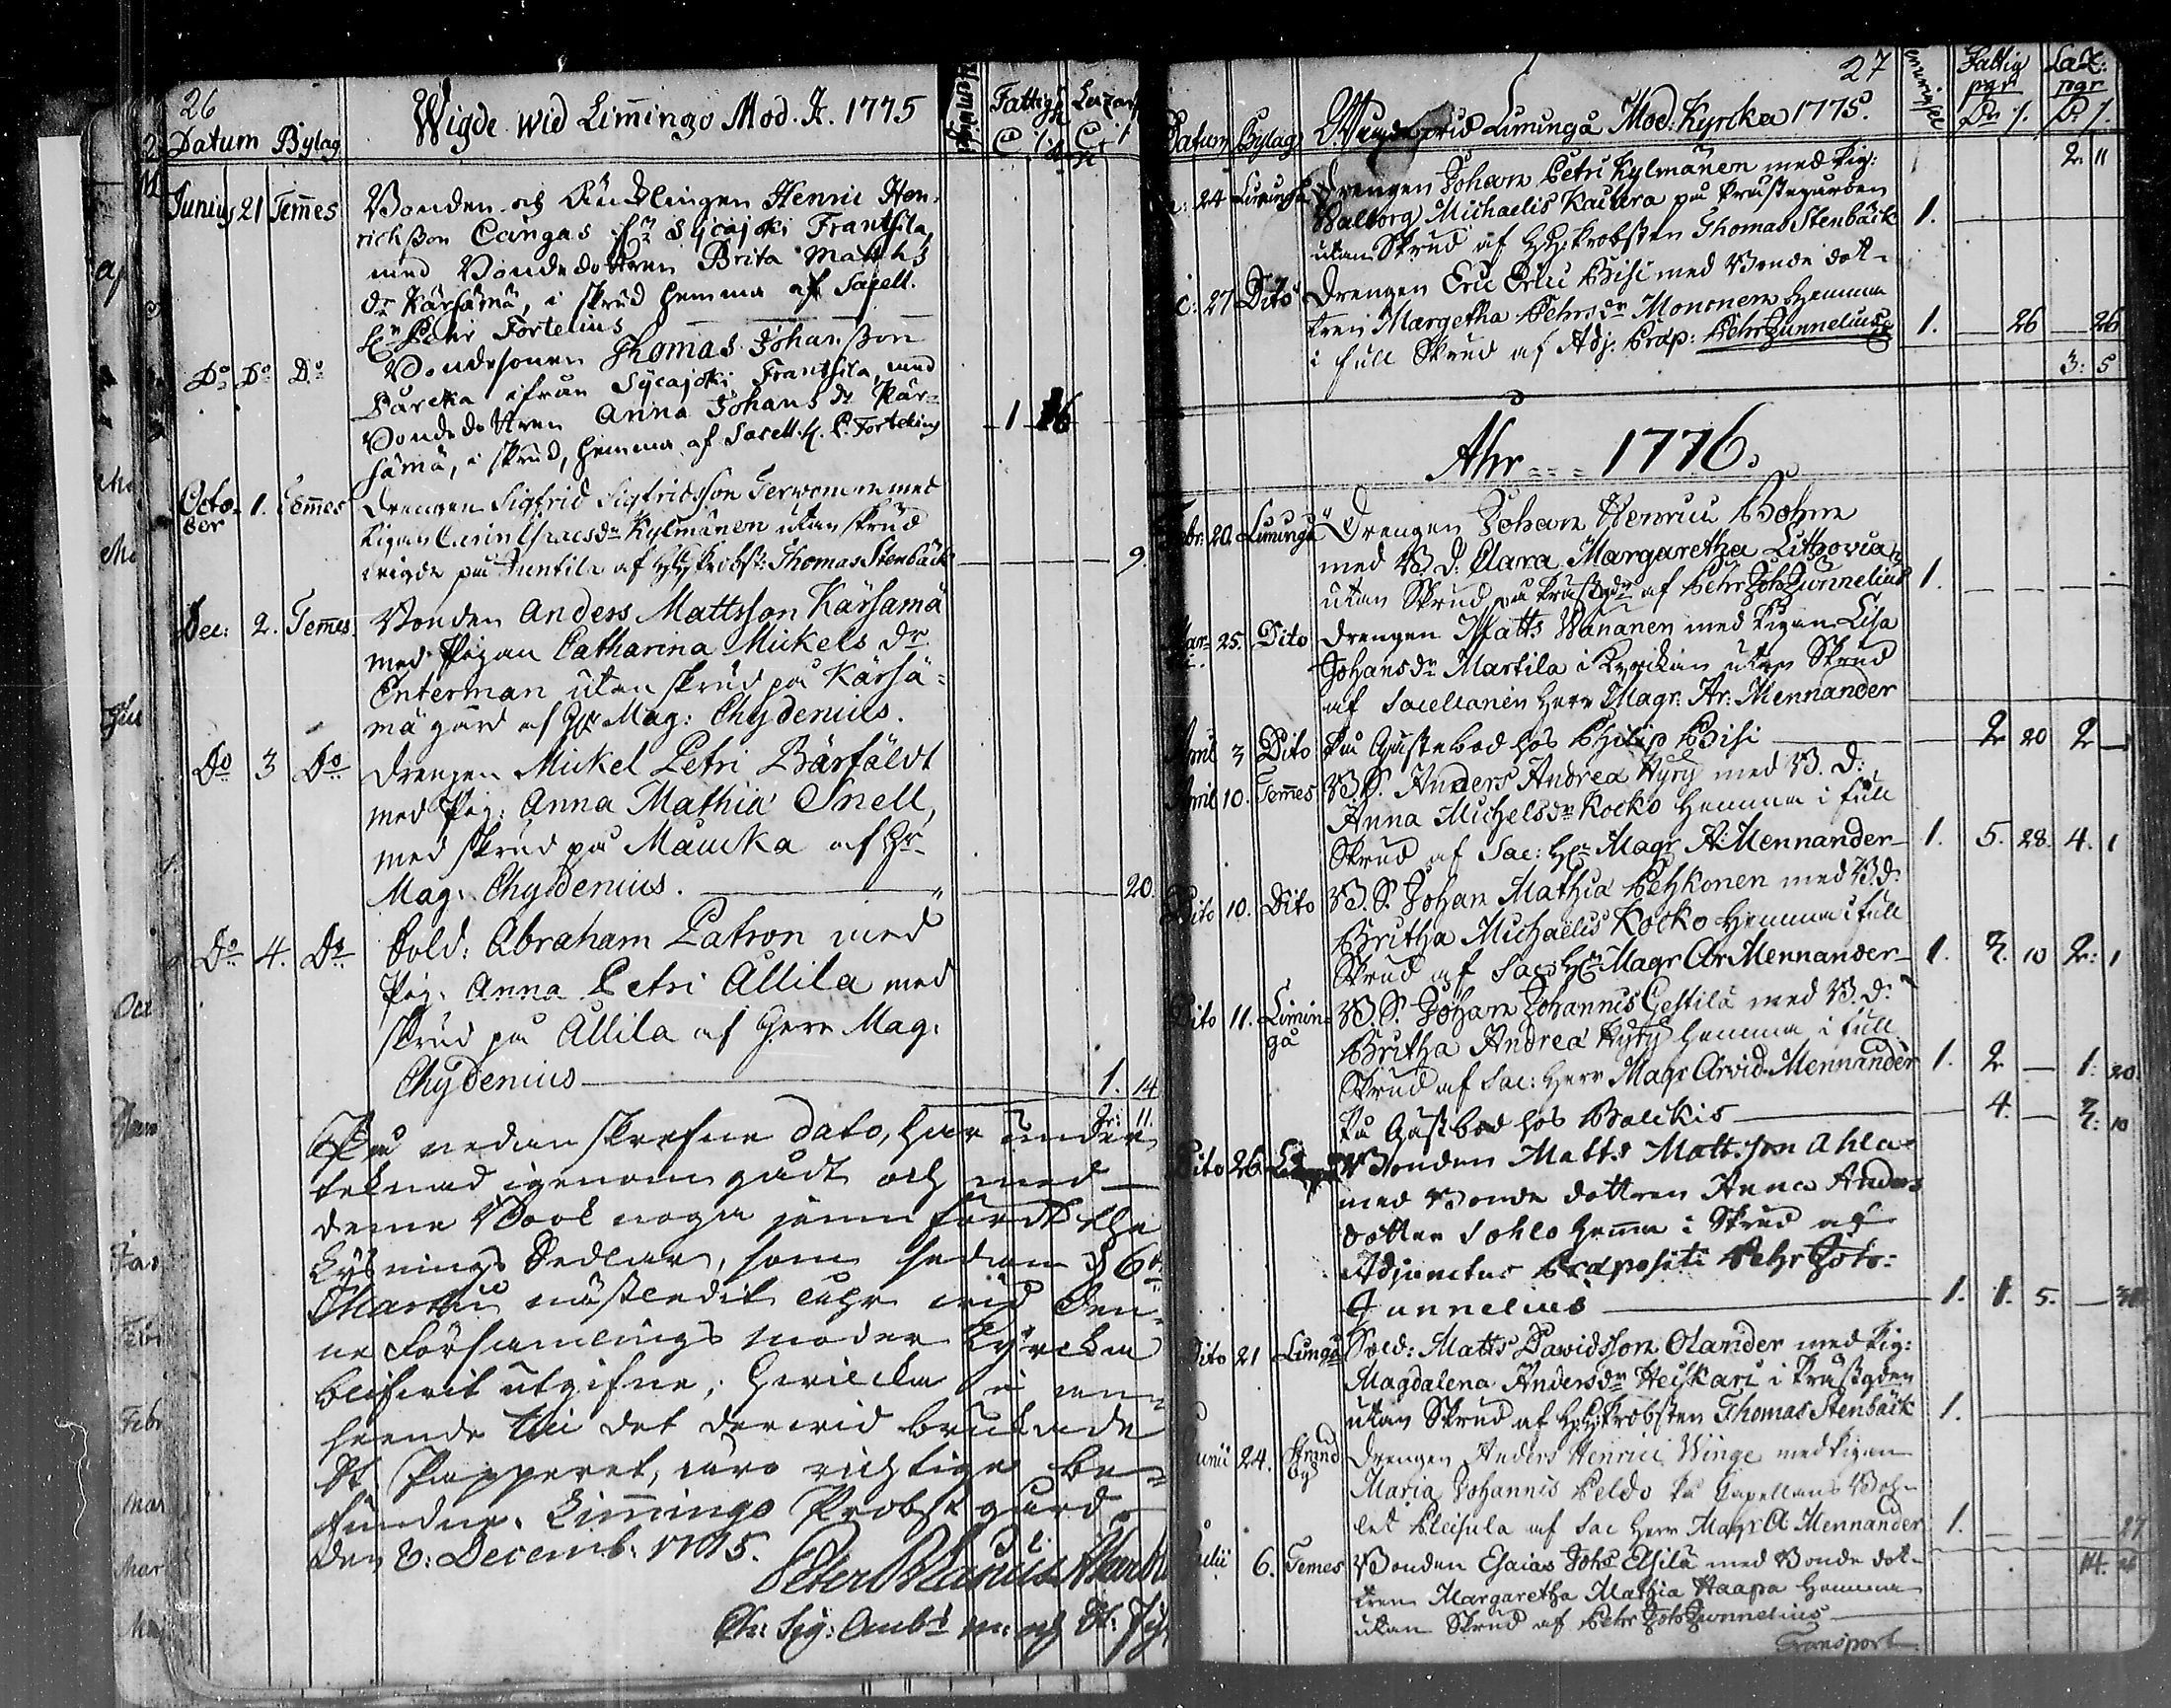 26
Wigde wid Limingo Mod. K. 1775
Datum Bylag
Fattig
Junius 21 Temes Bonden och Änklingen Henric Hen-
richsson Cangas ifr. Sycajoki Frantsila,
med Bondedottren Brita Matths
dr Kärsämä, i skrud hemma af Sacell.
Hr Peter Fortelius
Do Do Do Bondesonen Thomas Johansson
Pareka ifrån Sycajoki Frantsila, med
Bondedottren Anna Johans dr Kär-
sämä, i skrud, hemma af Sacell. H. P. Fortelius 1 16
Octo-
ber 1. Temes Drengen Sigfrid Sigfridsson Terwonen med
Pigan Carin Isacs dr Kylmänen utan skrud
wigde på Juntila af Probst: Thomas Stenbäck 9.
Dec: 2. Temes. Bonden Anders Mattsson Kärsämä
med Pigan Catharina Mickels dr
Enterman utan skrud på Kärsä-
mä gård af Hr Mag: Chydenius.
Do 3 Do Drengen Mickel Petri Bärfäldt
med Pig: Anna Mathiæ Snell,
med skrud på Maucka af Hr
Mag. Chydenius. 20.
Do 4. Do Sold: Abraham Patron med
Pig. Anna Petri Allila med
skrud på Allila af Herr Mag.
Chydenius 1. 14
2: 11.
På nedan skrefne dato, har under
teknad igenom gådt och med
denne Book noga jemnfördt the
Lysnings Sedlar, som sedan d 6te
Martii nästledit åhr wid den-
ne Församlings moder Kyrcka
blifwit utgifne, hwilka i an-
seende till det derwid brukade
St. Papperet, äro richtige be-
fundne. Limingo Probstgård
den 8. Decemb. 1775.
Peter Planus
27
Wigde wid Limingå Mod. Kyrcka 1775.
Datum Bylag
Fattig
pgr
pgr
2. 11
24 Limingå Drengen Johan Petri Kylmänen med Pig:
Walborg Michaelis Kackra på Prästegården
utan Skrud af Probsten Thomas Stenbäck 1.
27 Dito Drengen Eric Erici Pisi med Bonde dot-
tren Margetha Pehrs dr Mononen hemma
i full Skrud af Adj. Præp: Pehr Junnelius 1. 26 26
3: 5
Ahr 1776.
20. Limingå Drengen Johan Henrici Böhm
med B. D. Clara Margaretha Lithovia
utan Skrud på Prästgdn af Pehr Joh Junnelius 1.
Mar- 25. Dito Drengen Matts Wänänen med Pigan Lisa
Johans dr Martila i Kyrkian utan Skrud
af Sacellanen Herr Magr: Ar: Mennander
April 3 Dito På Gästebod hos Philip Pisi 2 20 2
April 10. Temes B. S. Anders Andreæ Kyrö med B. D:
Anna Michels dr Kocko hemma i full
Skrud af Sac: Hr Magr A: Mennander 1. 5. 28. 4. 1
Dito 10. Dito B. S. Johan Mathiæ Pehkonen med B. d:
Britha Michaelis Kocko hemma i full
Skrud af Sac: Hr Magr Ar Mennander 1. 2. 10 2: 1
Dito 11. Limin-
gå B. S. Johan Johannis Gestilä med B. d:
Britha Andreæ Kyrö hemma i full
Skrud af Sac: Herr Magr Arvid Mennander 1. 2 1: 20.
På Gästbod hos Balckis 4. 2: 10
Dito 26 Bonden Matts Mattsson Ahla
med Bonde dottren Anna Anders
dotter Sohlo hemma i Skrud af
Adjunctus Præpositi Pehr Joh:
Junnelius 1. 1. 5.
Dito 21 Limgå Sold: Matts Dawidsson Olander med Pig:
Magdalena Anders dr Heiskari i Prästgden
utan Skrud af Probsten Thomas Stenbäck 1.
Junii 24. Strand
by Drengen Anders Henrici Winge med Pigan
Maria Johannis Peldo på Capellans Bohl-
let Pleisula af Sac Herr Magr A Mennander 1. 27
Julii 6. Temes Bonden Esaias Johs Elsilä med Bonde dot-
tren Margaretha Mathiæ Haapa hemma
utan Skrud af Pehr Joh Junnelius
Transport